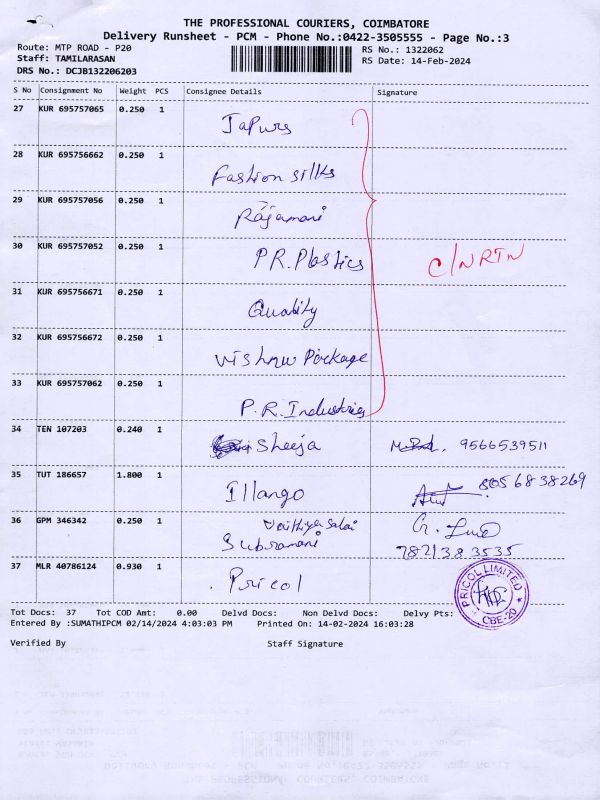 THE PROFESSIONAL COURIERS, COIMBATORE
Delivery Runsheet - PCM - Phone No.:0422-3505555 - Page No.:3
Route: MTP ROAD - P20 RS No.: 1322062
Staff: TAMILARASAN RS Date: 14-Feb-2024
DRS No.: DCJB132206203
S No Consignment No Weight PCS Consignee Details Signature
27 KUR 695757065 0.250 1
28 KUR 695756662 0.250 1 Fashion silks
29 KUR 695757056 0.250 1 Rajamani
30 KUR 695757052 0.250 1 P.R. Plastics C/N RTN
31 KUR 695756671 0.250 1 Quality
32 KUR 695756672 0.250 1 Vishnu Package
33 KUR 695757062 0.250 1 P.R. Industries
34 TEN 107203 0.240 1 Sheeja 9566539511
35 TUT 186657 1.800 1 Illango 8056838269
36 GPM 346342 0.250 1 Vaithiya salai
Subramani 7821383535
37 MLR 40786124 0.930 1 Pricol
PRICOL LIMITED
CBE-20
Tot Docs: 37 Tot COD Amt: 0.00 Delvd Docs: Non Delvd Docs: Delvy Pts:
Entered By :SUMATHIPCM 02/14/2024 4:03:03 PM Printed On: 14-02-2024 16:03:28
Verified By Staff Signature